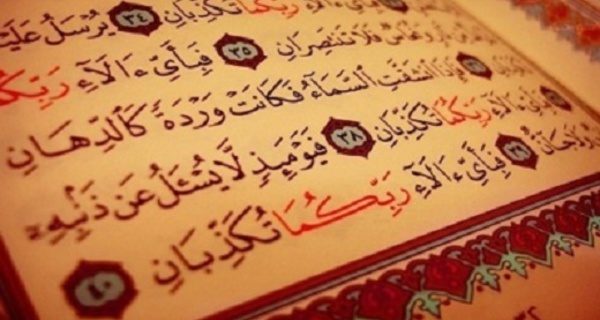 ءَالَآءِ رَبِّكُمَا تُكَذِّبَانِ ٣٤ يُرْسَلُ
وَنُحَاسٌ فَلَا تَنتَصِرَانِ ٣٥ فَبِأَيِّ ءَالَآءِ
فَإِذَا ٱنشَقَّتِ ٱلسَّمَآءُ فَكَانَتْ وَرْدَةً كَٱلدِّهَانِ
ءَالَآءِ رَبِّكُمَا تُكَذِّبَانِ ٣٨ فَيَوْمَئِذٍ لَّا يُسْـَٔلُ عَن ذَنۢبِهِۦٓ
جَآنٌّ ٣٩ فَبِأَيِّ ءَالَآءِ رَبِّكُمَا تُكَذِّبَانِ ٤٠